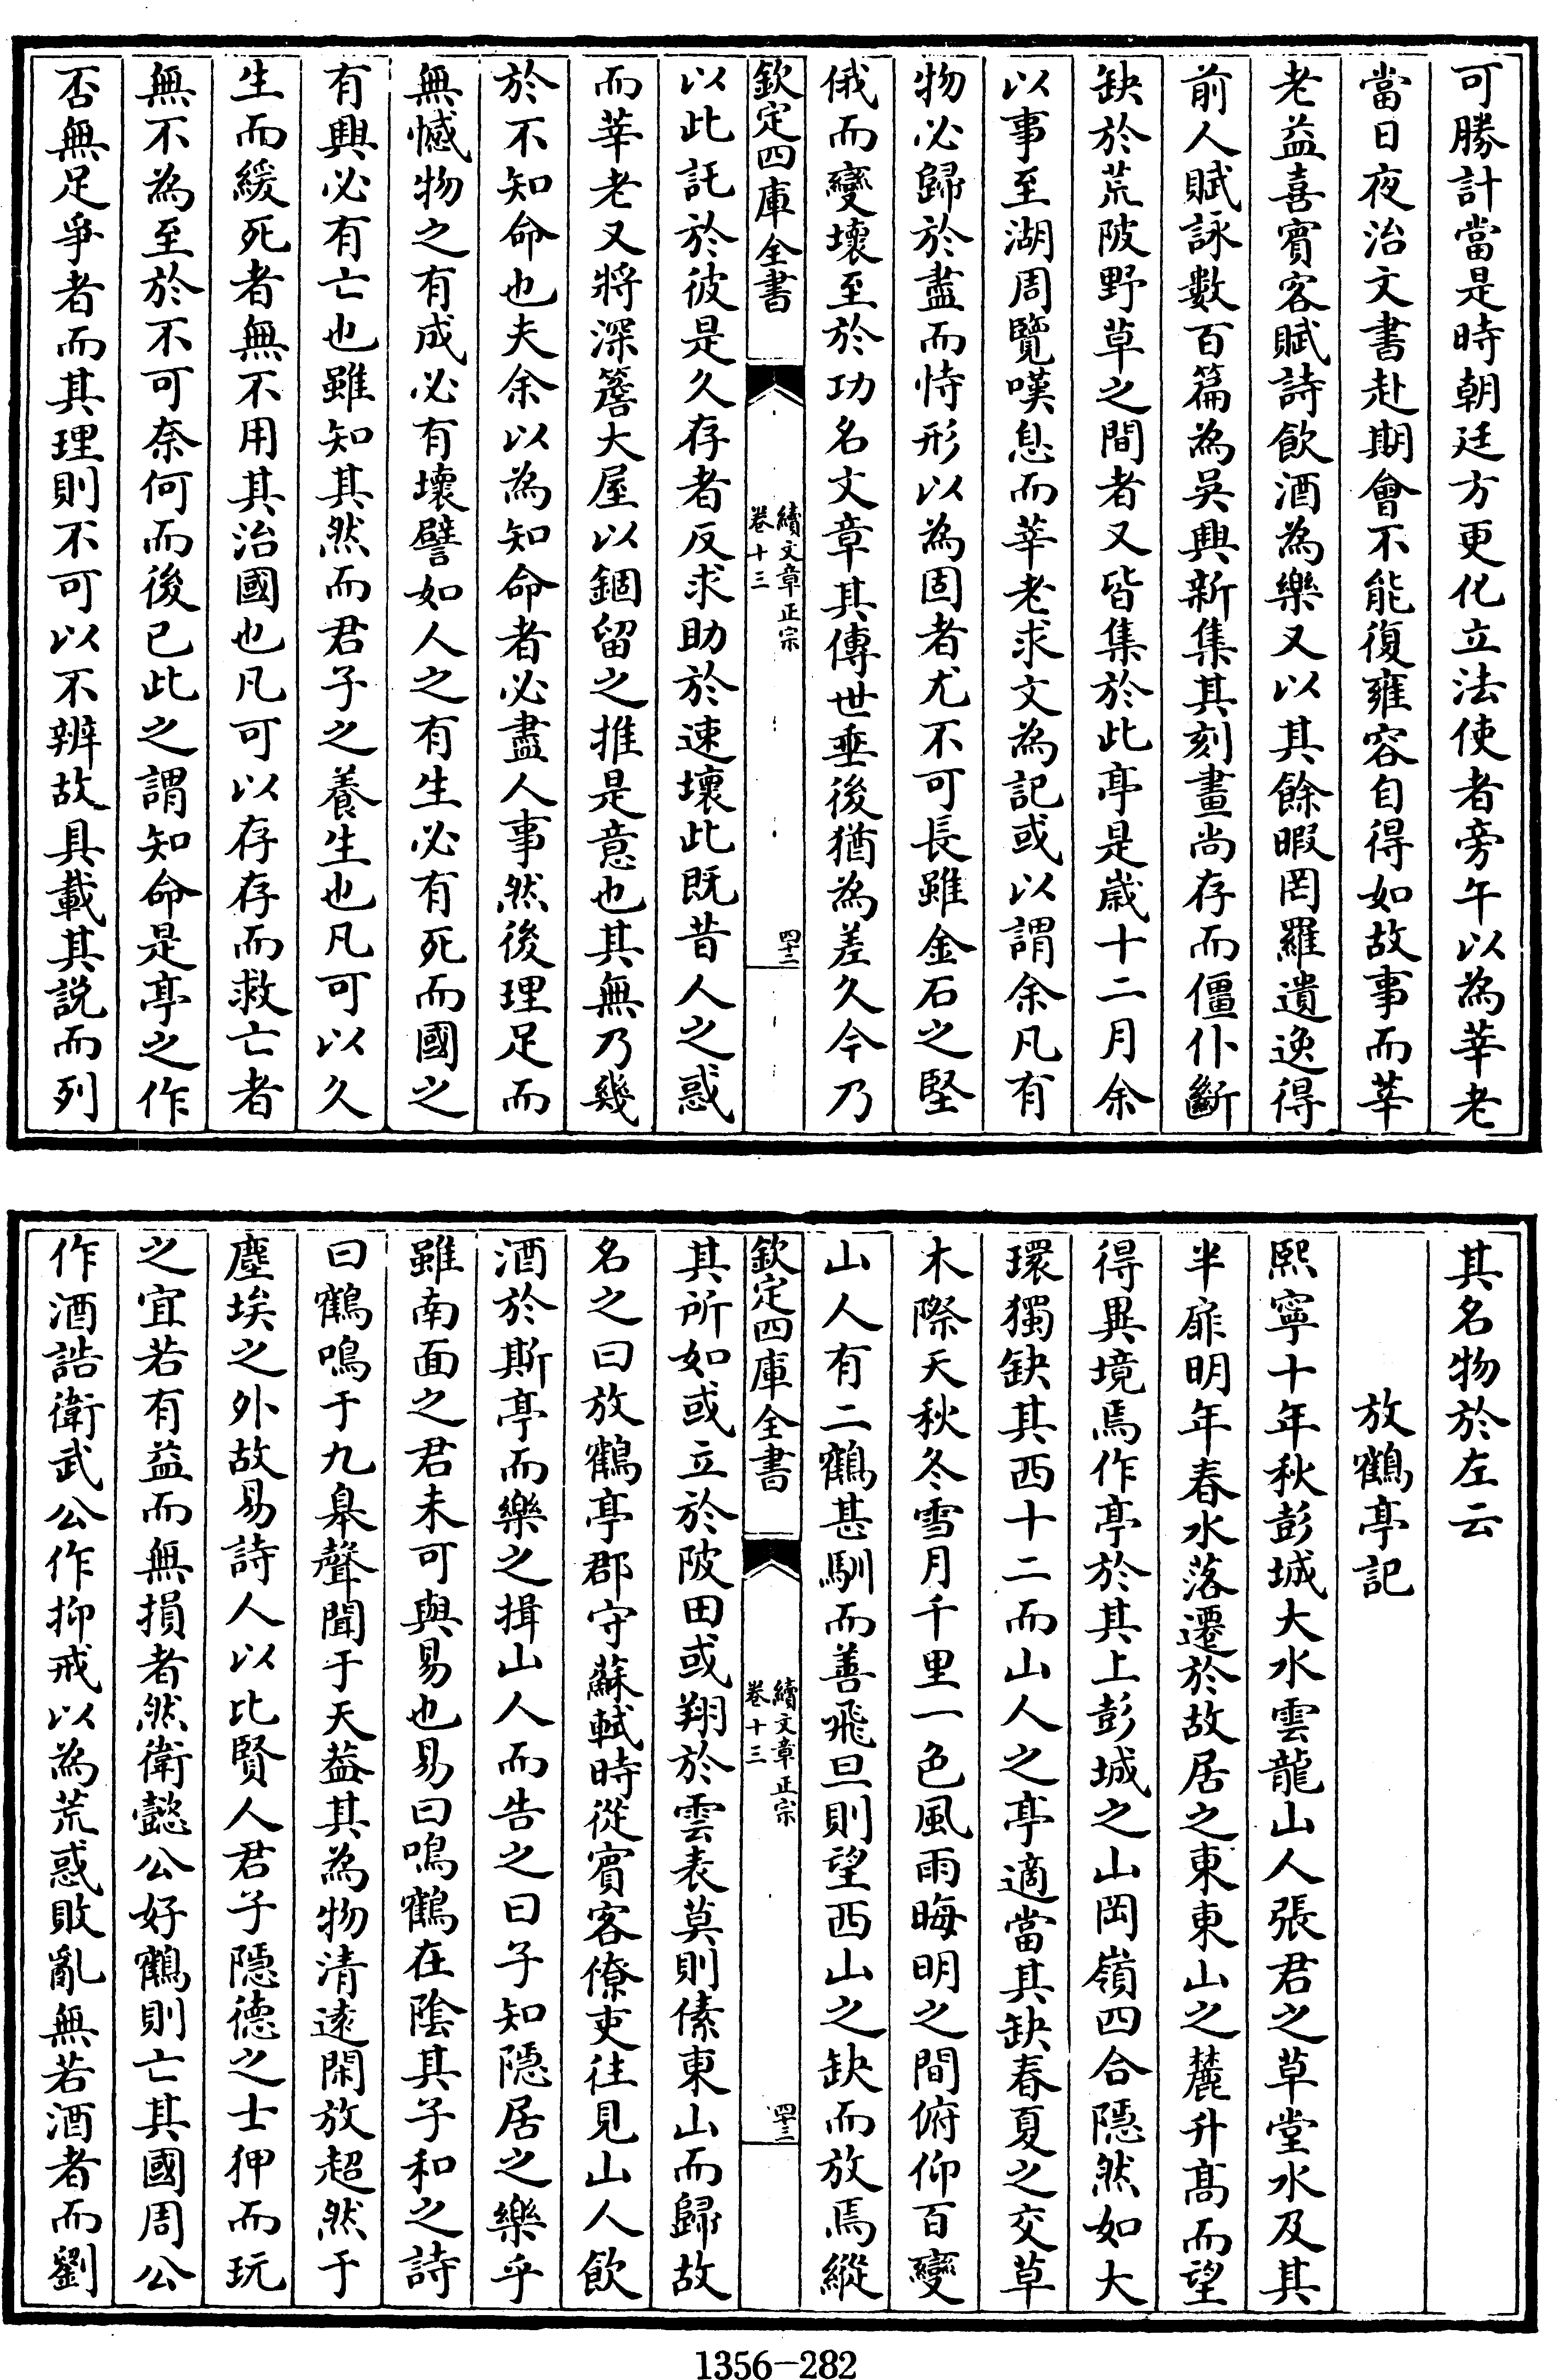 可勝計當是時朝廷方更化立法使者旁午以為莘老
當日夜治文書赴期會不能復雍容自得如故事而莘
老益喜賓客賦詩飲酒為樂又以其餘暇罔羅遺逸得
前人賦詠數百篇為吳興新集其刻畫尚存而僵仆斷
缺於荒陂野草之間者又皆集於此亭是嵗十二月余
以事至湖周覽嘆息而莘老求文為記或以謂余凡有
物必歸於盡而恃形以為固者尤不可長雖金石之堅
俄而變壞至於功名文章其傳世垂後猶為差久今乃
欽定四庫全書
續文章正宗
卷十三
四十三
以此託於彼是久存者反求助於速壞此既昔人之惑
而莘老又將深簷大屋以錮留之推是意也其無乃幾
於不知命也夫余以為知命者必盡人事然後理足而
無憾物之有成必有壞譬如人之有生必有死而國之
有興必有亡也雖知其然而君子之養生也凡可以久
生而緩死者無不用其治國也凡可以存存而救亡者
無不為至於不可奈何而後已此之謂知命是亭之作
否無足爭者而其理則不可以不辨故具載其説而列
其名物於左云
放鶴亭記
熙寧十年秋彭城大水雲龍山人張君之草堂水及其
半扉明年春水落遷於故居之東東山之麓升髙而望
得異境焉作亭於其上彭城之山岡嶺四合隱然如大
環獨缺其西十二而山人之亭適當其缺春夏之交草
木際天秋冬雪月千里一色風雨晦明之間俯仰百變
山人有二鶴甚馴而善飛旦則望西山之缺而放焉縱
欽定四庫全書
續文章正宗
卷十三
四十三
其所如或立於陂田或翔於雲表莫則傃東山而歸故
名之曰放鶴亭郡守蘇軾時從賓客僚吏往見山人飲
酒於斯亭而樂之揖山人而告之曰子知隱居之樂乎
雖南面之君未可與易也易曰鳴鶴在陰其子和之詩
曰鶴鳴于九臯聲聞于天葢其為物清逺閑放超然于
塵埃之外故易詩人以比賢人君子隱德之士狎而玩
之宜若有益而無損者然衛懿公好鶴則亡其國周公
作酒誥衛武公作抑戒以為荒惑敗亂無若酒者而劉
1356-282